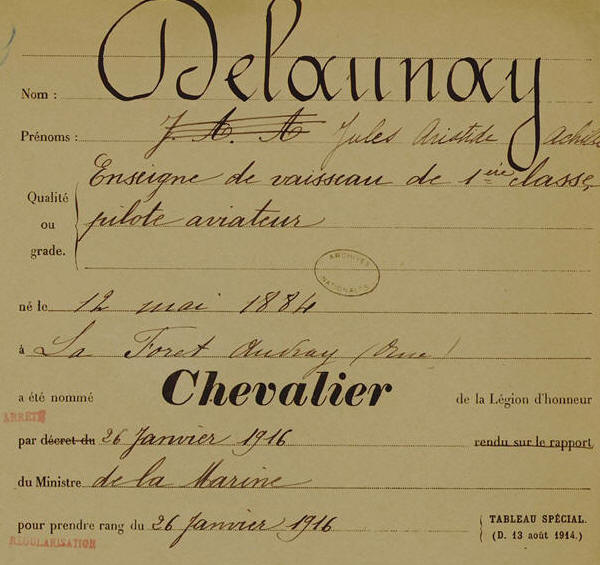 Nom : Delaunay
Prénoms : J. A. A. Jules Aristide Achille
Enseigne de vaisseau de 1ière classe,
Qualité
ou
grade.
pilote aviateur
ARCHIVES
NATIONALES
né le 12 mai 1884
à La Foret Auvray (Orne)
a été nommé Chevalier de la Légion d'honneur
ARRETÉ
par décret du 26 Janvier 1916 rendu sur le rapport
du Ministre de la Marine
pour prendre rang du 26 Janvier 1916
TABLEAU SPÉCIAL.
(D. 13 août 1914.)
REGULARISATION